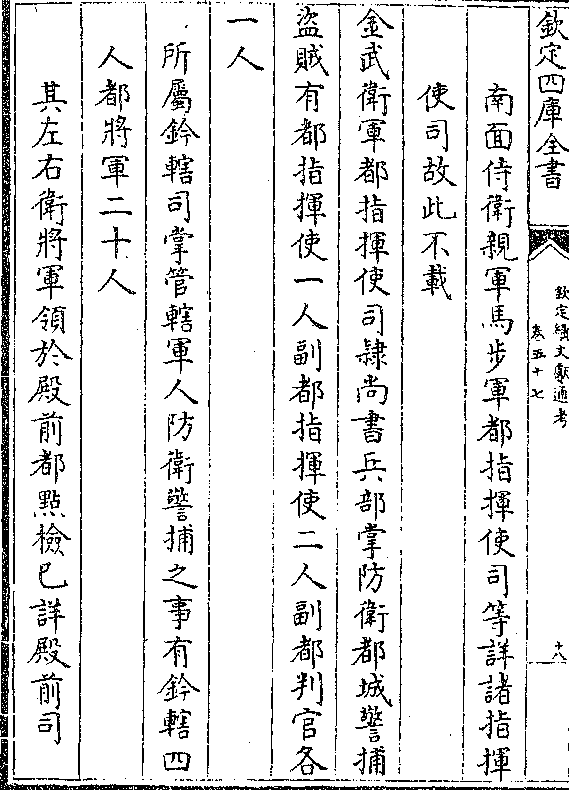 欽定四庫全書
欽定續文獻通考
卷五十七
十八
南面侍衛親軍馬步軍都指揮使司等詳諸指揮
使司故此不載
金武衛軍都指揮使司隸尚書兵部掌防衛都城警捕
盜賊有都指揮使一人副都指揮使二人副都判官各
一人
所屬鈐轄司掌管轄軍人防衛警捕之事有鈐轄四
人都將軍二十人
其左右衛將軍領於殿前都點檢已詳殿前司